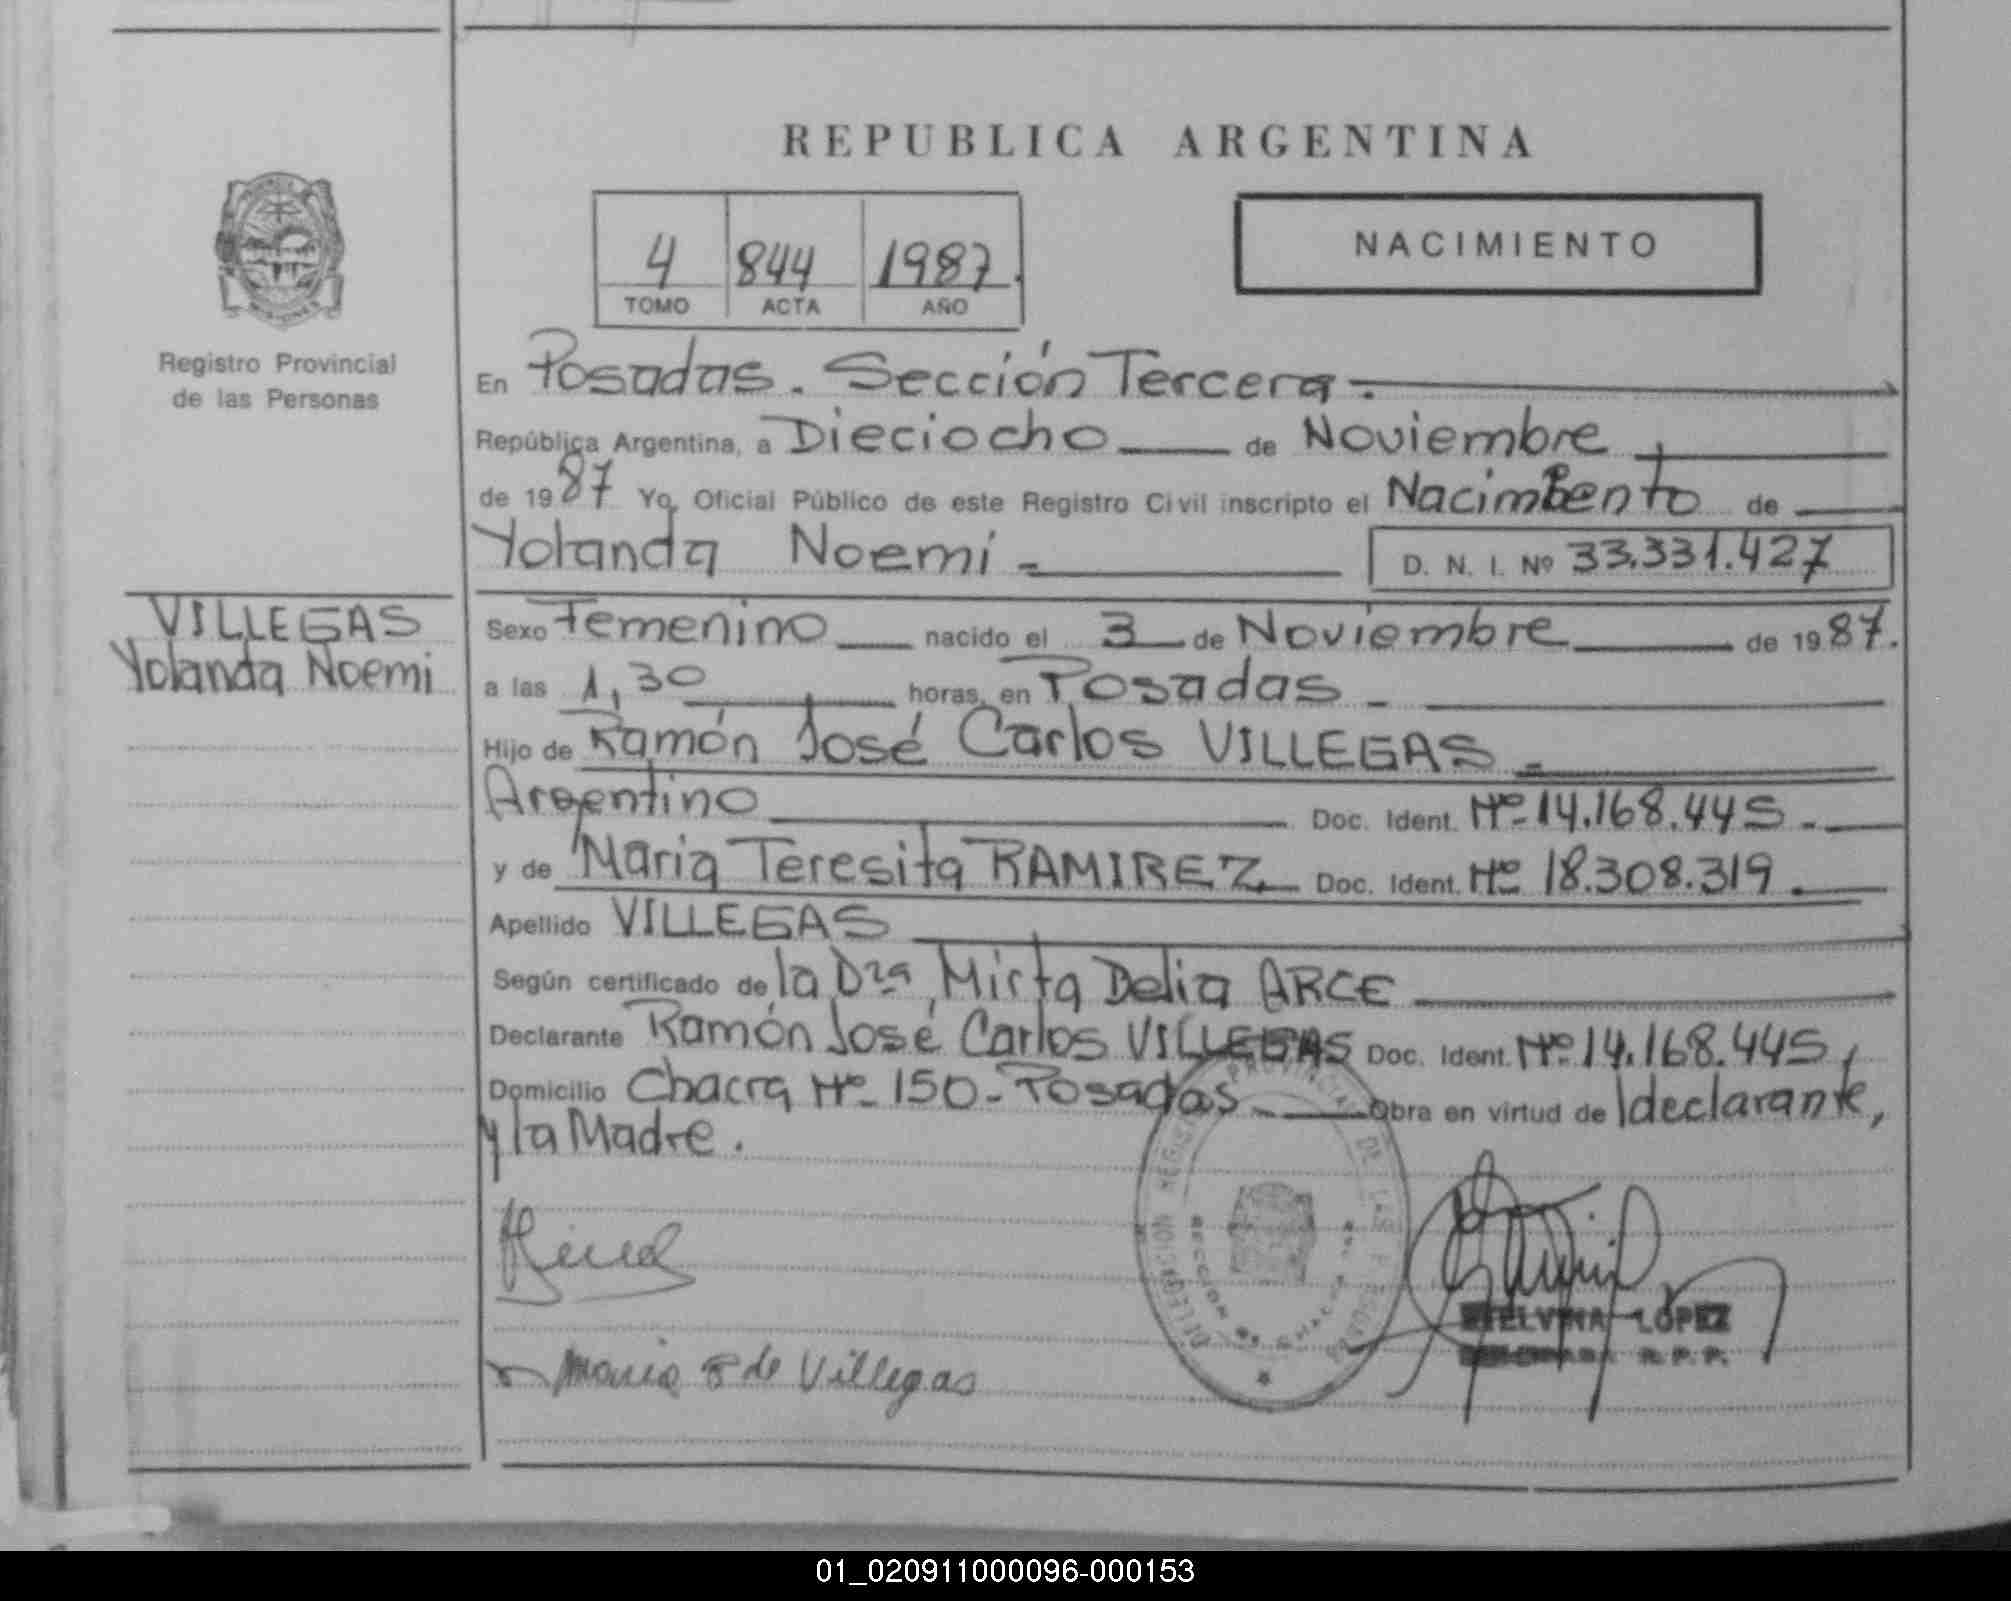 REPUBLICA ARGENTINA
4 844 1987
TOMO ACTA AÑO
NACIMIENTO
Registro Provincial
de las Personas
VILLEGAS
Yolanda Noemi
En Posadas. Sección Tercera.
República Argentina, a Dieciocho de Noviembre
de 1987 Yo, Oficial Público de este Registro Civil inscripto el Nacimiento de
Yolanda Noemí D. N. I. Nº 33.331.427
Sexo Femenino nacido el 3 de Noviembre de 1987.
a las 1,30 horas, en Posadas
Hijo de Ramón José Carlos VILLEGAS
Argentino Doc. Ident. Nº 14.168.445
y de Maria Teresita RAMIREZ Doc. Ident. Nº 18.308.319
Apellido VILLEGAS
Según certificado de la Dra Mirta Delia ARCE
Declarante Ramón José Carlos VILLEGAS Doc. Ident. Nº 14.168.445,
Domicilio Chacra Nº 150-Posadas Obra en virtud de declarante,
y la Madre.
Maria de Villegas
LOPEZ
R.P.P.
01_020911000096-000153